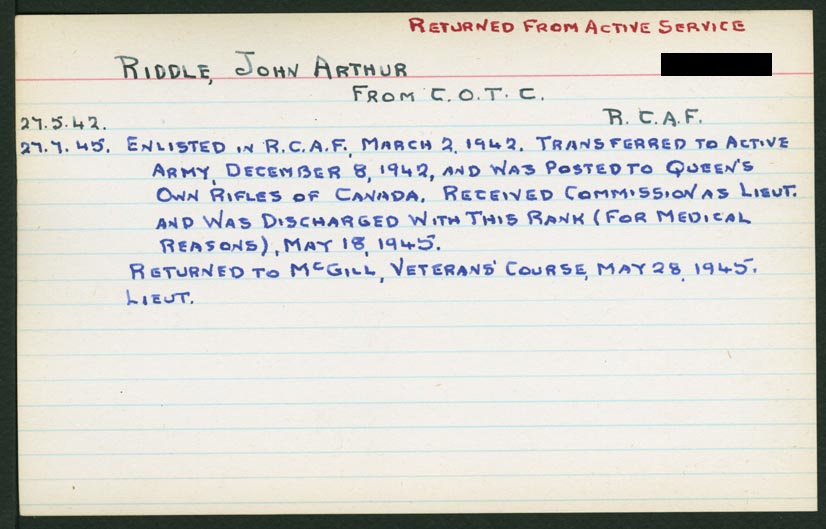 RETURNED FROM ACTIVE SERVICE
RIDDLE, JOHN ARTHUR
FROM C.O.T.C.
27.5.42. R.C.A.F.
27.7.45. ENLISTED IN R.C.A.F., MARCH 2, 1942. TRANSFERRED TO ACTIVE
ARMY, DECEMBER 8, 1942, AND WAS POSTED TO QUEEN'S
OWN RIFLES OF CANADA. RECEIVED COMMISSION AS LIEUT.
AND WAS DISCHARGED WITH THIS RANK (FOR MEDICAL
REASONS), MAY 18, 1945.
RETURNED TO MCGILL, VETERANS' COURSE, MAY 28, 1945.
LIEUT.